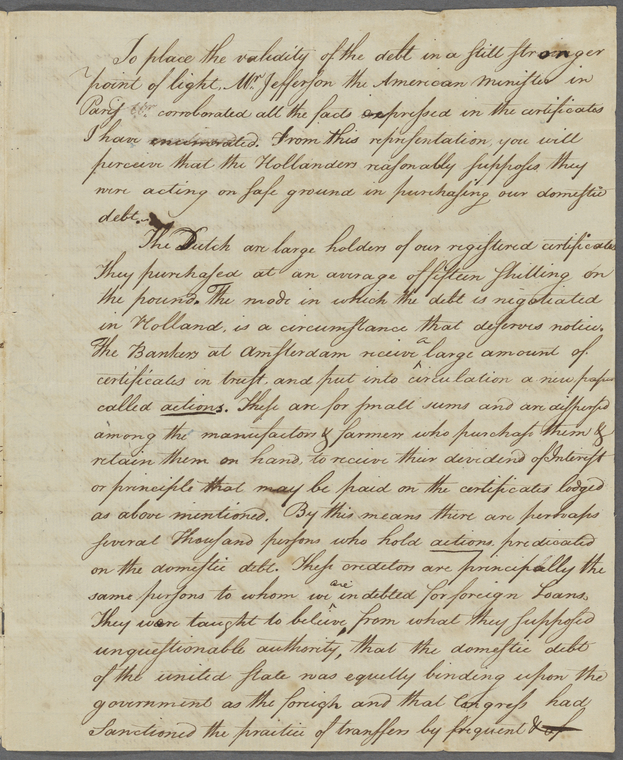 To place the validity of the debt in a still stronger
point of light, Mr Jefferson the American minister in
Paris corroborated all the facts expressed in the certificates
I have enumerated. From this representation, you will
perceive that the Hollanders reasonably supposes they
were acting on safe ground in purchasing our domestic
debt.
The Dutch are large holders of our registered certificates
They purchased at an average of fifteen Shilling on
the pound. The mode in which the debt is negotiated
in Holland, is a circumstance that deserves notice.
The Bankers at Amsterdam receive a large amount of
certificates in trust, and put into circulation a new paper
called actions. These are for small sums and are dispersed
among the manufactors & farmers who purchase them &
retain them on hand, to receive their dividend of Interest
or principle that may be paid on the certificates lodged
as above mentioned. By this means there are perhaps
several Thousand persons who hold actions, predicated
on the domestic debt. These creditors are principally the
same persons to whom we are indebted for foreign Loans.
They were taught to believe, from what they supposed
unquestionable authority, that the domestic debt
of the united State was equelly binding upon the
government as the foreigh and that Congress had
Sanctioned the practice of transffers by frequent & of